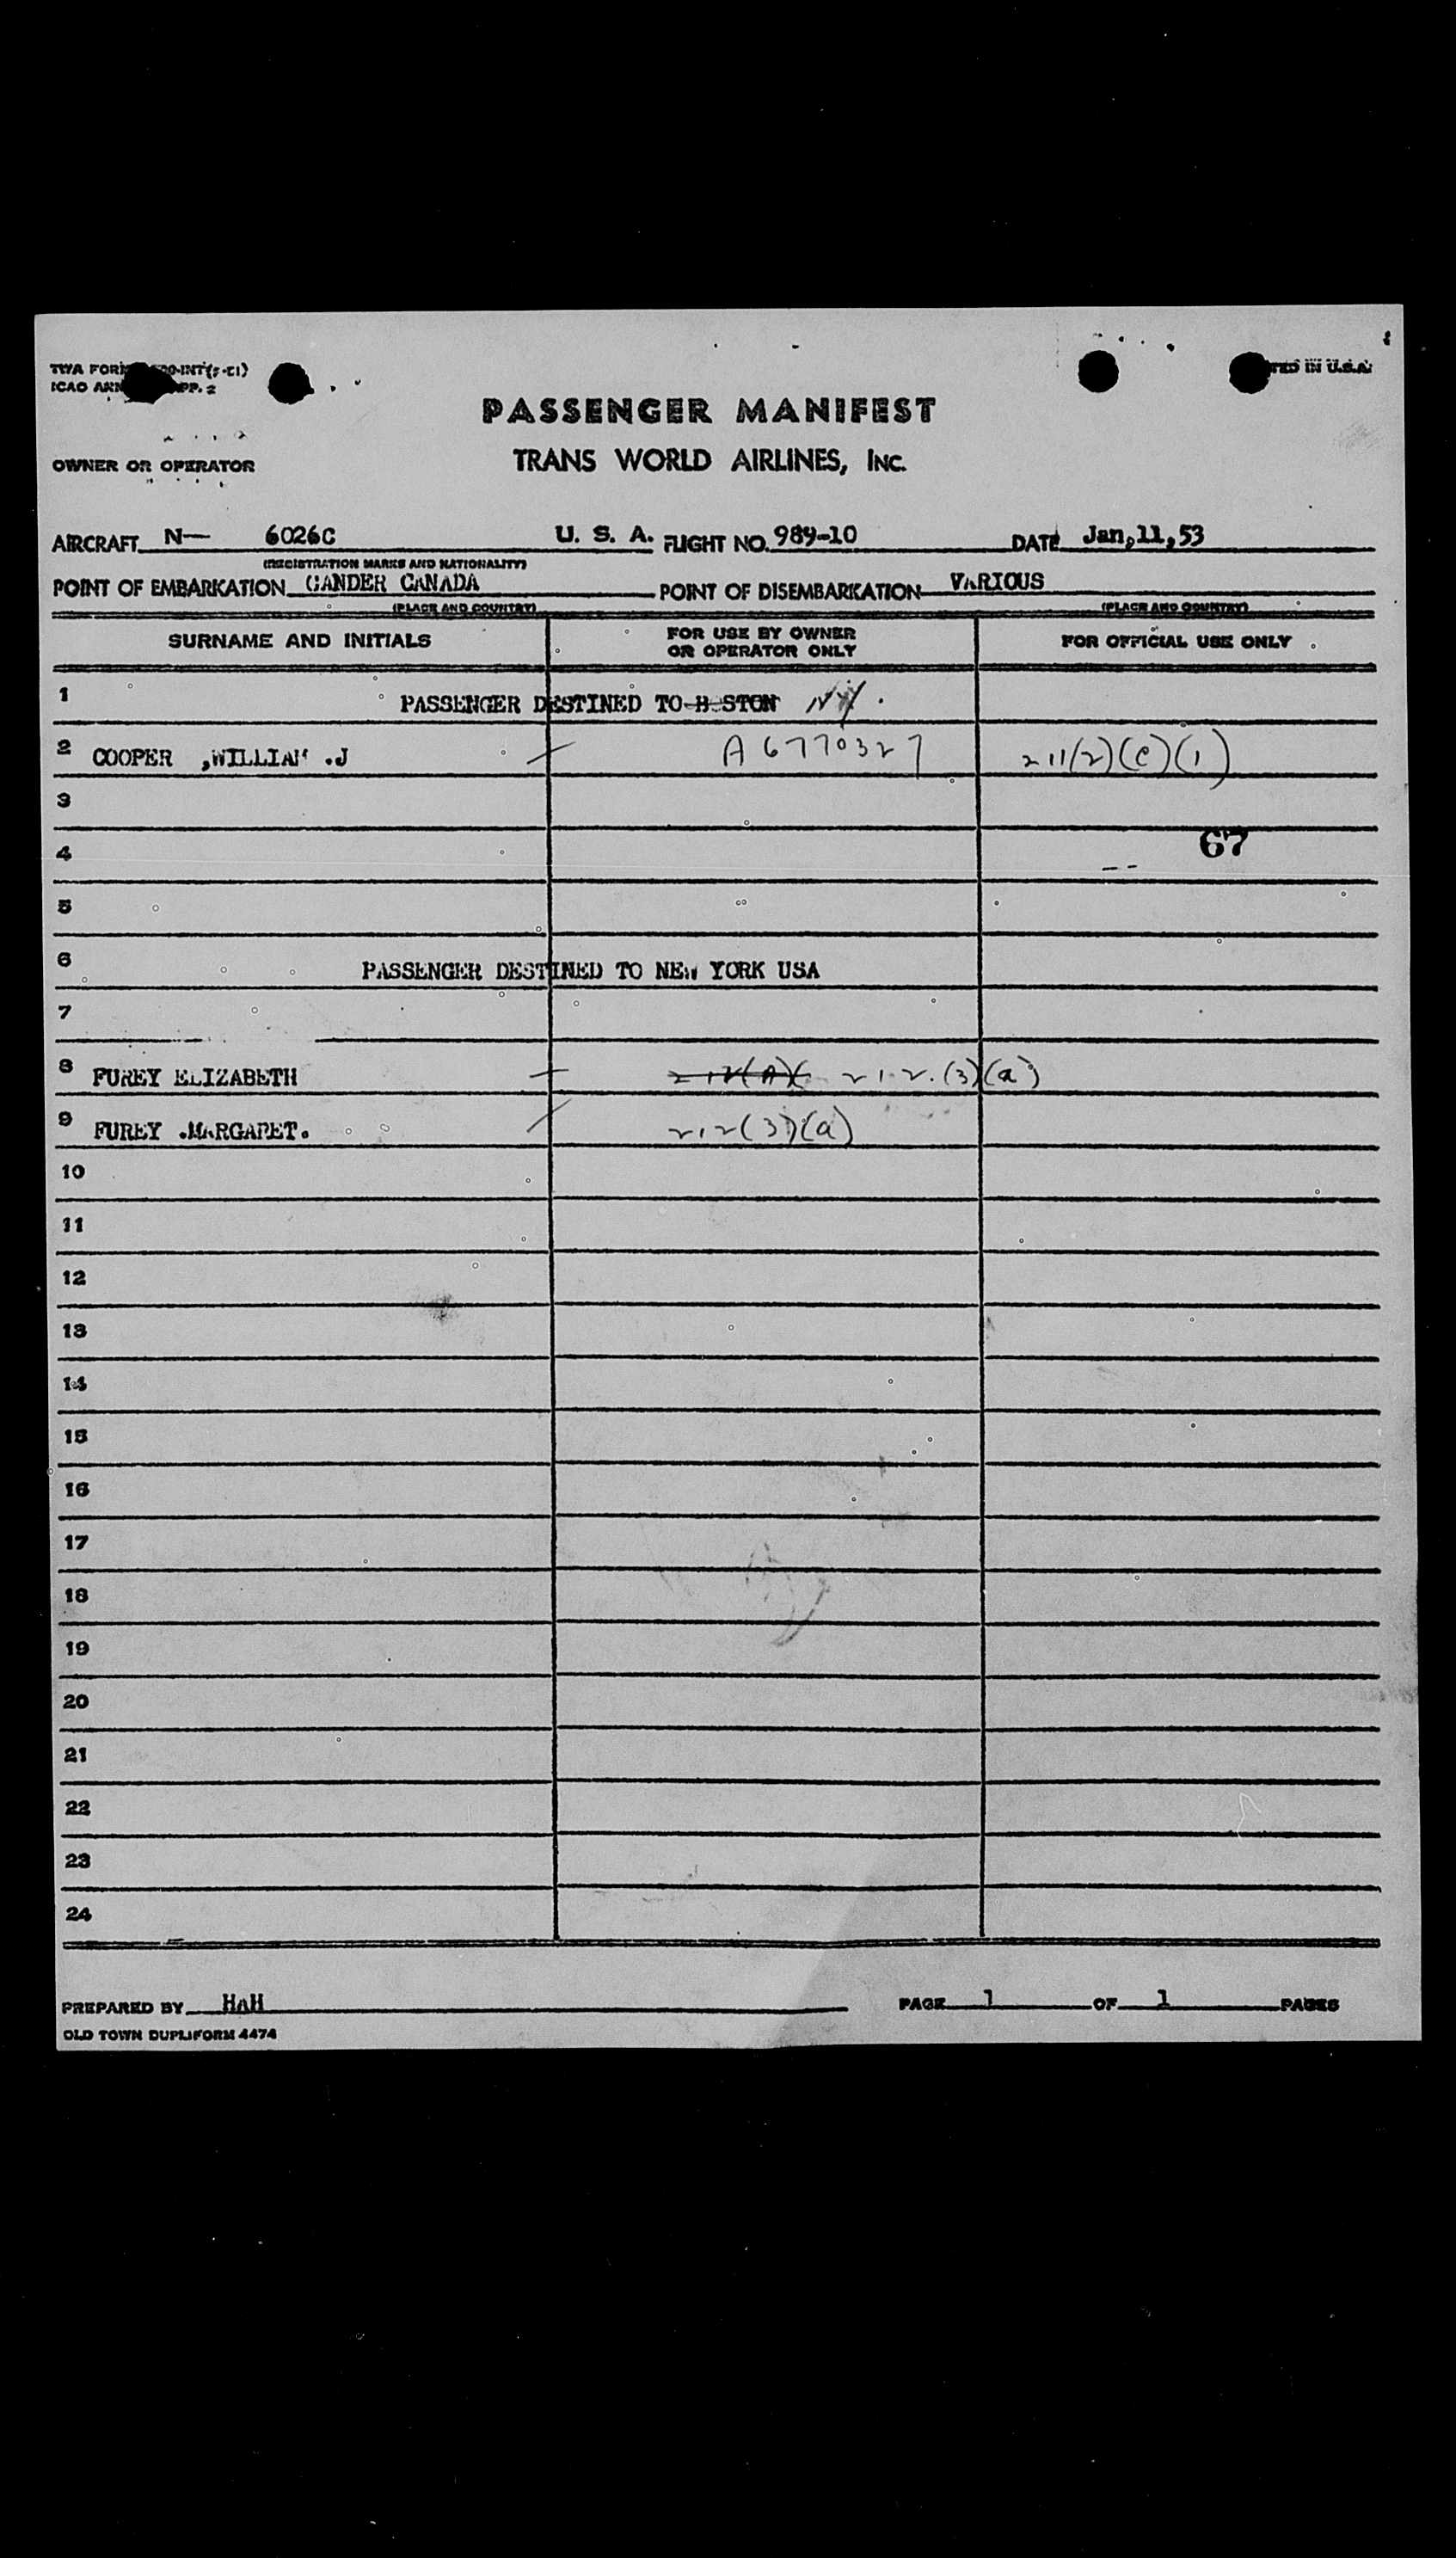 TWA FORM -INT(5-51)
ICAO ANN APP. 2
TED IN U.S.A.
PASSENGER MANIFEST
OWNER OR OPERATOR
TRANS WORLD AIRLINES, INC.
AIRCRAFT N— 6026C U. S. A. FLIGHT NO. 989-10 DATE Jan,11,53
(REGISTRATION MARKS AND NATIONALITY)
POINT OF EMBARKATION GANDER CANADA POINT OF DISEMBARKATION VARIOUS
(PLACE AND COUNTRY) (PLACE AND COUNTRY)
SURNAME AND INITIALS FOR USE BY OWNER OR OPERATOR ONLY FOR OFFICIAL USE ONLY
1 PASSENGER DESTINED TO BOSTON NY.
2 COOPER ,WILLIAM .J A6770327 211(2)(c)(1)
3
4 67
5
6 PASSENGER DESTINED TO NEW YORK USA
7
8 FUREY ELIZABETH 212(A)( 212.(3)(a)
9 FUREY .MARGARET. 212(3)(a)
10
11
12
13
14
15
16
17
18
19
20
21
22
23
24
PREPARED BY HAH PAGE 1 OF 1 PAGES
OLD TOWN DUPLIFORM 4474